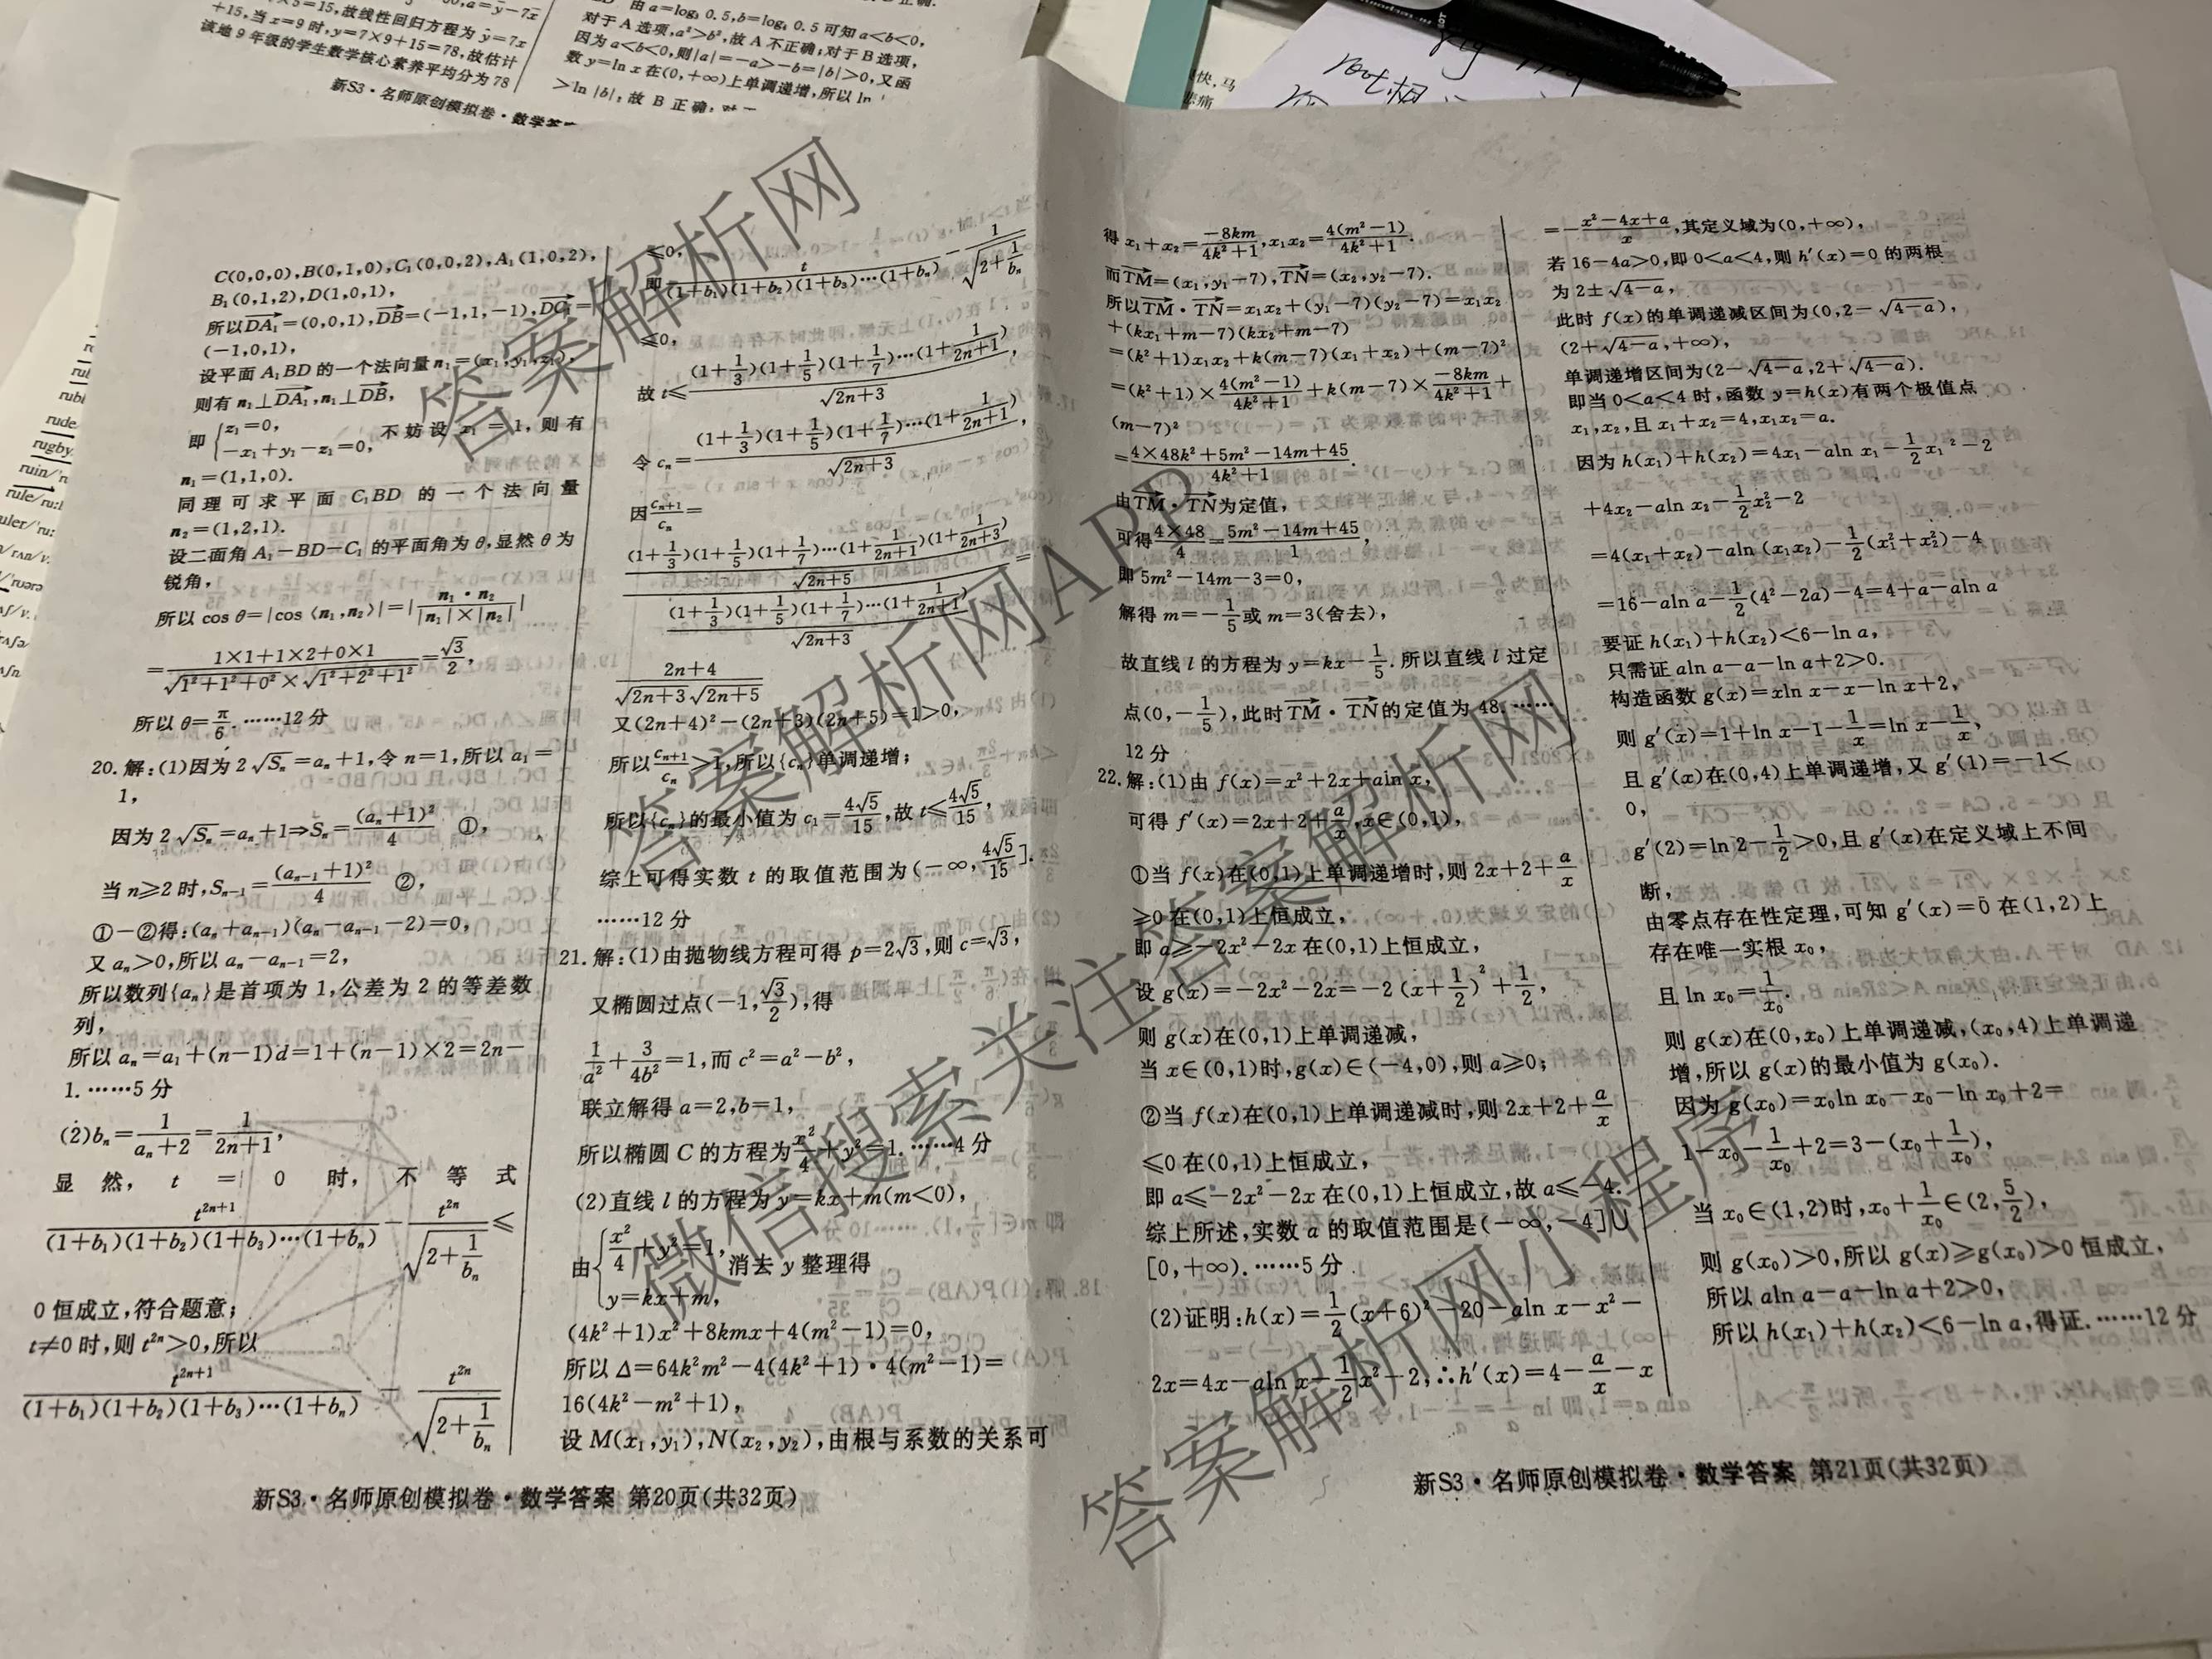 ×5=15,故线性回归方程为ŷ=7x
+15,当x=9时,y=7×9+15=78,故估计
该地9年级的学生数学核心素养平均分为78
新S3·名师原创模拟卷·数学答
可知a<b<0,
对于A选项,a²>b²,故A不正确;对于B选项,
因为a<b<0,则|a|=-a>-b=|b|>0,又函
数y=ln x在(0,+∞)上单调递增,所以ln
>ln |b|,故B正确;
快,马
悲痛
rude
rugby
C(0,0,0),B(0,1,0),C₁(0,0,2),A₁(1,0,2),
B₁(0,1,2),D(1,0,1),
所以DA₁=(0,0,1),DB=(-1,1,-1),DC₁=
(-1,0,1),
设平面A₁BD的一个法向量n₁=(x₁,y₁,z₁),
则有n₁⊥DA₁,n₁⊥DB,
即{z₁=0, -x₁+y₁-z₁=0, 不妨设x₁=1,则有
n₁=(1,1,0).
同理可求平面C₁BD的一个法向量
n₂=(1,2,1).
设二面角A₁-BD-C₁的平面角为θ,显然θ为
锐角,
所以cos θ=|cos⟨n₁,n₂⟩|=|n₁·n₂/(|n₁|×|n₂|)|
=(1×1+1×2+0×1)/(√(1²+1²+0²)×√(1²+2²+1²))=√3/2,
所以θ=π/6.……12分
20.解:(1)因为2√Sₙ=aₙ+1,令n=1,所以a₁=
1,
因为2√Sₙ=aₙ+1⇒Sₙ=(aₙ+1)²/4 ①,
当n≥2时,Sₙ₋₁=(aₙ₋₁+1)²/4 ②,
①-②得:(aₙ+aₙ₋₁)(aₙ-aₙ₋₁-2)=0,
又aₙ>0,所以aₙ-aₙ₋₁=2,
所以数列{aₙ}是首项为1,公差为2的等差数
列,
所以aₙ=a₁+(n-1)d=1+(n-1)×2=2n-
1.……5分
(2)bₙ=1/(aₙ+2)=1/(2n+1),
显然,t=0时,不等式
t²ⁿ⁺¹/((1+b₁)(1+b₂)(1+b₃)…(1+bₙ))-t²ⁿ/√(2+1/bₙ)≤
0恒成立,符合题意;
t≠0时,则t²ⁿ>0,所以
t²ⁿ⁺¹/((1+b₁)(1+b₂)(1+b₃)…(1+bₙ))-t²ⁿ/√(2+1/bₙ)
≤0,
即t/((1+b₁)(1+b₂)(1+b₃)…(1+bₙ))-1/√(2+1/bₙ)
≤0,
故t≤(1+1/3)(1+1/5)(1+1/7)…(1+1/(2n+1))/√(2n+3),
令cₙ=(1+1/3)(1+1/5)(1+1/7)…(1+1/(2n+1))/√(2n+3),
因cₙ₊₁/cₙ=
[(1+1/3)(1+1/5)(1+1/7)…(1+1/(2n+1))(1+1/(2n+3))/√(2n+5)]/[(1+1/3)(1+1/5)(1+1/7)…(1+1/(2n+1))/√(2n+3)]=
(2n+4)/(√(2n+3)√(2n+5))
又(2n+4)²-(2n+3)(2n+5)=1>0,
所以cₙ₊₁/cₙ>1,所以{cₙ}单调递增;
所以{cₙ}的最小值为c₁=4√5/15,故t≤4√5/15,
综上可得实数t的取值范围为(-∞,4√5/15].
……12分
21.解:(1)由抛物线方程可得p=2√3,则c=√3,
又椭圆过点(-1,√3/2),得
1/a²+3/4b²=1,而c²=a²-b²,
联立解得a=2,b=1,
所以椭圆C的方程为x²/4+y²=1.……4分
(2)直线l的方程为y=kx+m(m<0),
由{x²/4+y²=1, y=kx+m, 消去y整理得
(4k²+1)x²+8kmx+4(m²-1)=0,
所以Δ=64k²m²-4(4k²+1)·4(m²-1)=
16(4k²-m²+1),
设M(x₁,y₁),N(x₂,y₂),由根与系数的关系可
新S3·名师原创模拟卷·数学答案 第20页(共32页)
得x₁+x₂=-8km/(4k²+1),x₁x₂=4(m²-1)/(4k²+1).
而TM=(x₁,y₁-7),TN=(x₂,y₂-7).
所以TM·TN=x₁x₂+(y₁-7)(y₂-7)=x₁x₂
+(kx₁+m-7)(kx₂+m-7)
=(k²+1)x₁x₂+k(m-7)(x₁+x₂)+(m-7)²
=(k²+1)×4(m²-1)/(4k²+1)+k(m-7)×-8km/(4k²+1)+
(m-7)²
=(4×48k²+5m²-14m+45)/(4k²+1).
由TM·TN为定值,
可得4×48/4=(5m²-14m+45)/1,
即5m²-14m-3=0,
解得m=-1/5或m=3(舍去),
故直线l的方程为y=kx-1/5.所以直线l过定
点(0,-1/5),此时TM·TN的定值为48.……
12分
22.解:(1)由f(x)=x²+2x+aln x,
可得f′(x)=2x+2+a/x,x∈(0,1),
①当f(x)在(0,1)上单调递增时,则2x+2+a/x
≥0在(0,1)上恒成立,
即a≥-2x²-2x在(0,1)上恒成立,
设g(x)=-2x²-2x=-2(x+1/2)²+1/2,
则g(x)在(0,1)上单调递减,
当x∈(0,1)时,g(x)∈(-4,0),则a≥0;
②当f(x)在(0,1)上单调递减时,则2x+2+a/x
≤0在(0,1)上恒成立,
即a≤-2x²-2x在(0,1)上恒成立,故a≤-4.
综上所述,实数a的取值范围是(-∞,-4]∪
[0,+∞).……5分
(2)证明:h(x)=1/2(x+6)²-20-aln x-x²-
2x=4x-aln x-1/2x²-2,∴h′(x)=4-a/x-x
=-(x²-4x+a)/x,其定义域为(0,+∞),
若16-4a>0,即0<a<4,则h′(x)=0的两根
为2±√(4-a),
此时f(x)的单调递减区间为(0,2-√(4-a)),
(2+√(4-a),+∞),
单调递增区间为(2-√(4-a),2+√(4-a)).
即当0<a<4时,函数y=h(x)有两个极值点
x₁,x₂,且x₁+x₂=4,x₁x₂=a.
因为h(x₁)+h(x₂)=4x₁-aln x₁-1/2x₁²-2
+4x₂-aln x₂-1/2x₂²-2
=4(x₁+x₂)-aln (x₁x₂)-1/2(x₁²+x₂²)-4
=16-aln a-1/2(4²-2a)-4=4+a-aln a
要证h(x₁)+h(x₂)<6-ln a,
只需证aln a-a-ln a+2>0.
构造函数g(x)=xln x-x-ln x+2,
则g′(x)=1+ln x-1-1/x=ln x-1/x,
且g′(x)在(0,4)上单调递增,又g′(1)=-1<
0,
g′(2)=ln 2-1/2>0,且g′(x)在定义域上不间
断,
由零点存在性定理,可知g′(x)=0在(1,2)上
存在唯一实根x₀,
且ln x₀=1/x₀.
则g(x)在(0,x₀)上单调递减,(x₀,4)上单调递
增,所以g(x)的最小值为g(x₀).
因为g(x₀)=x₀ln x₀-x₀-ln x₀+2=
1-x₀-1/x₀+2=3-(x₀+1/x₀),
当x₀∈(1,2)时,x₀+1/x₀∈(2,5/2),
则g(x₀)>0,所以g(x)≥g(x₀)>0恒成立,
所以aln a-a-ln a+2>0,
所以h(x₁)+h(x₂)<6-ln a,得证.……12分
新S3·名师原创模拟卷·数学答案 第21页(共32页)
答案解析网
答案解析网APP
微信搜索关注答案解析网
答案解析网小程序